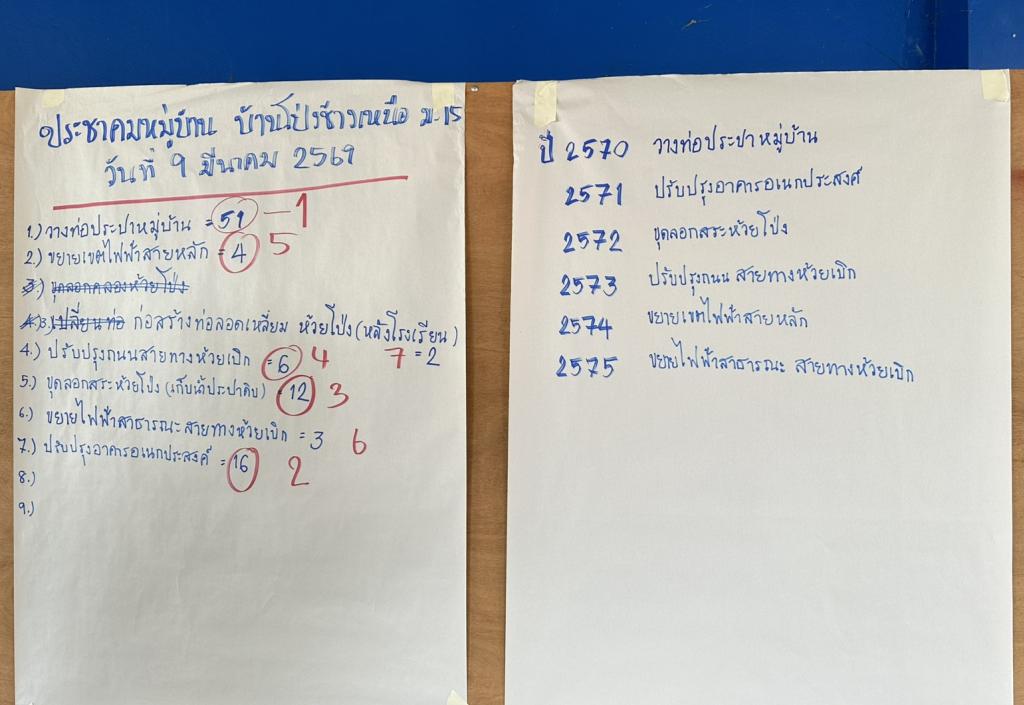 ประชาคมหมู่บ้าน บ้านโป่งช้างเหนือ ม.15
วันที่ 9 มีนาคม 2569
1.) วางท่อประปาหมู่บ้าน = 51 - 1
2.) ขยายเขตไฟฟ้าสายหลัก = 4 5
3.) ขุดลอกคลองห้วยโป่ง
4.) 3.) เปลี่ยนท่อ ก่อสร้างท่อลอดเหลี่ยม ห้วยโป่ง (หลังโรงเรียน)
7 = 2
4.) ปรับปรุงถนนสายทางห้วยเบิก = 6 4
5.) ขุดลอกสระห้วยโป่ง (เก็บน้ำประปาดิบ) = 12 3
6.) ขยายไฟฟ้าสาธารณะสายทางห้วยเบิก = 3 6
7.) ปรับปรุงอาคารอเนกประสงค์ = 16 2
8.)
9.)
ปี 2570 วางท่อประปาหมู่บ้าน
2571 ปรับปรุงอาคารอเนกประสงค์
2572 ขุดลอกสระห้วยโป่ง
2573 ปรับปรุงถนน สายทางห้วยเบิก
2574 ขยายเขตไฟฟ้าสายหลัก
2575 ขยายไฟฟ้าสาธารณะ สายทางห้วยเบิก